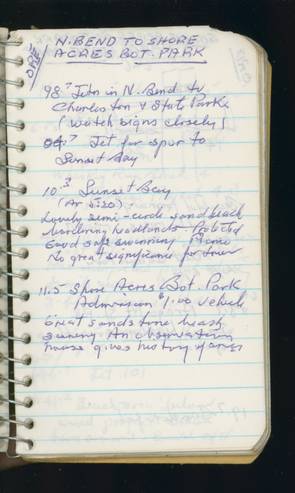 ORE
N. BEND TO SHORE
ACRES BOT. PARK
98.7 Jctn in N. Bend to
Charleston & State Parks
(watch signs closely)
04.7 Jct for spur to
Sunset Bay
10.3 Sunset Bay
(Ar 1:50).
Lovely semi-circle sand beach
bordering headlands. Protected
Good safe swimming Picnic
No great significance for tour
11.5 Shore Acres Bot. Park
Admission $1.00 vehicle
Great sandstone beach
scenery. An observation
house gives history of area